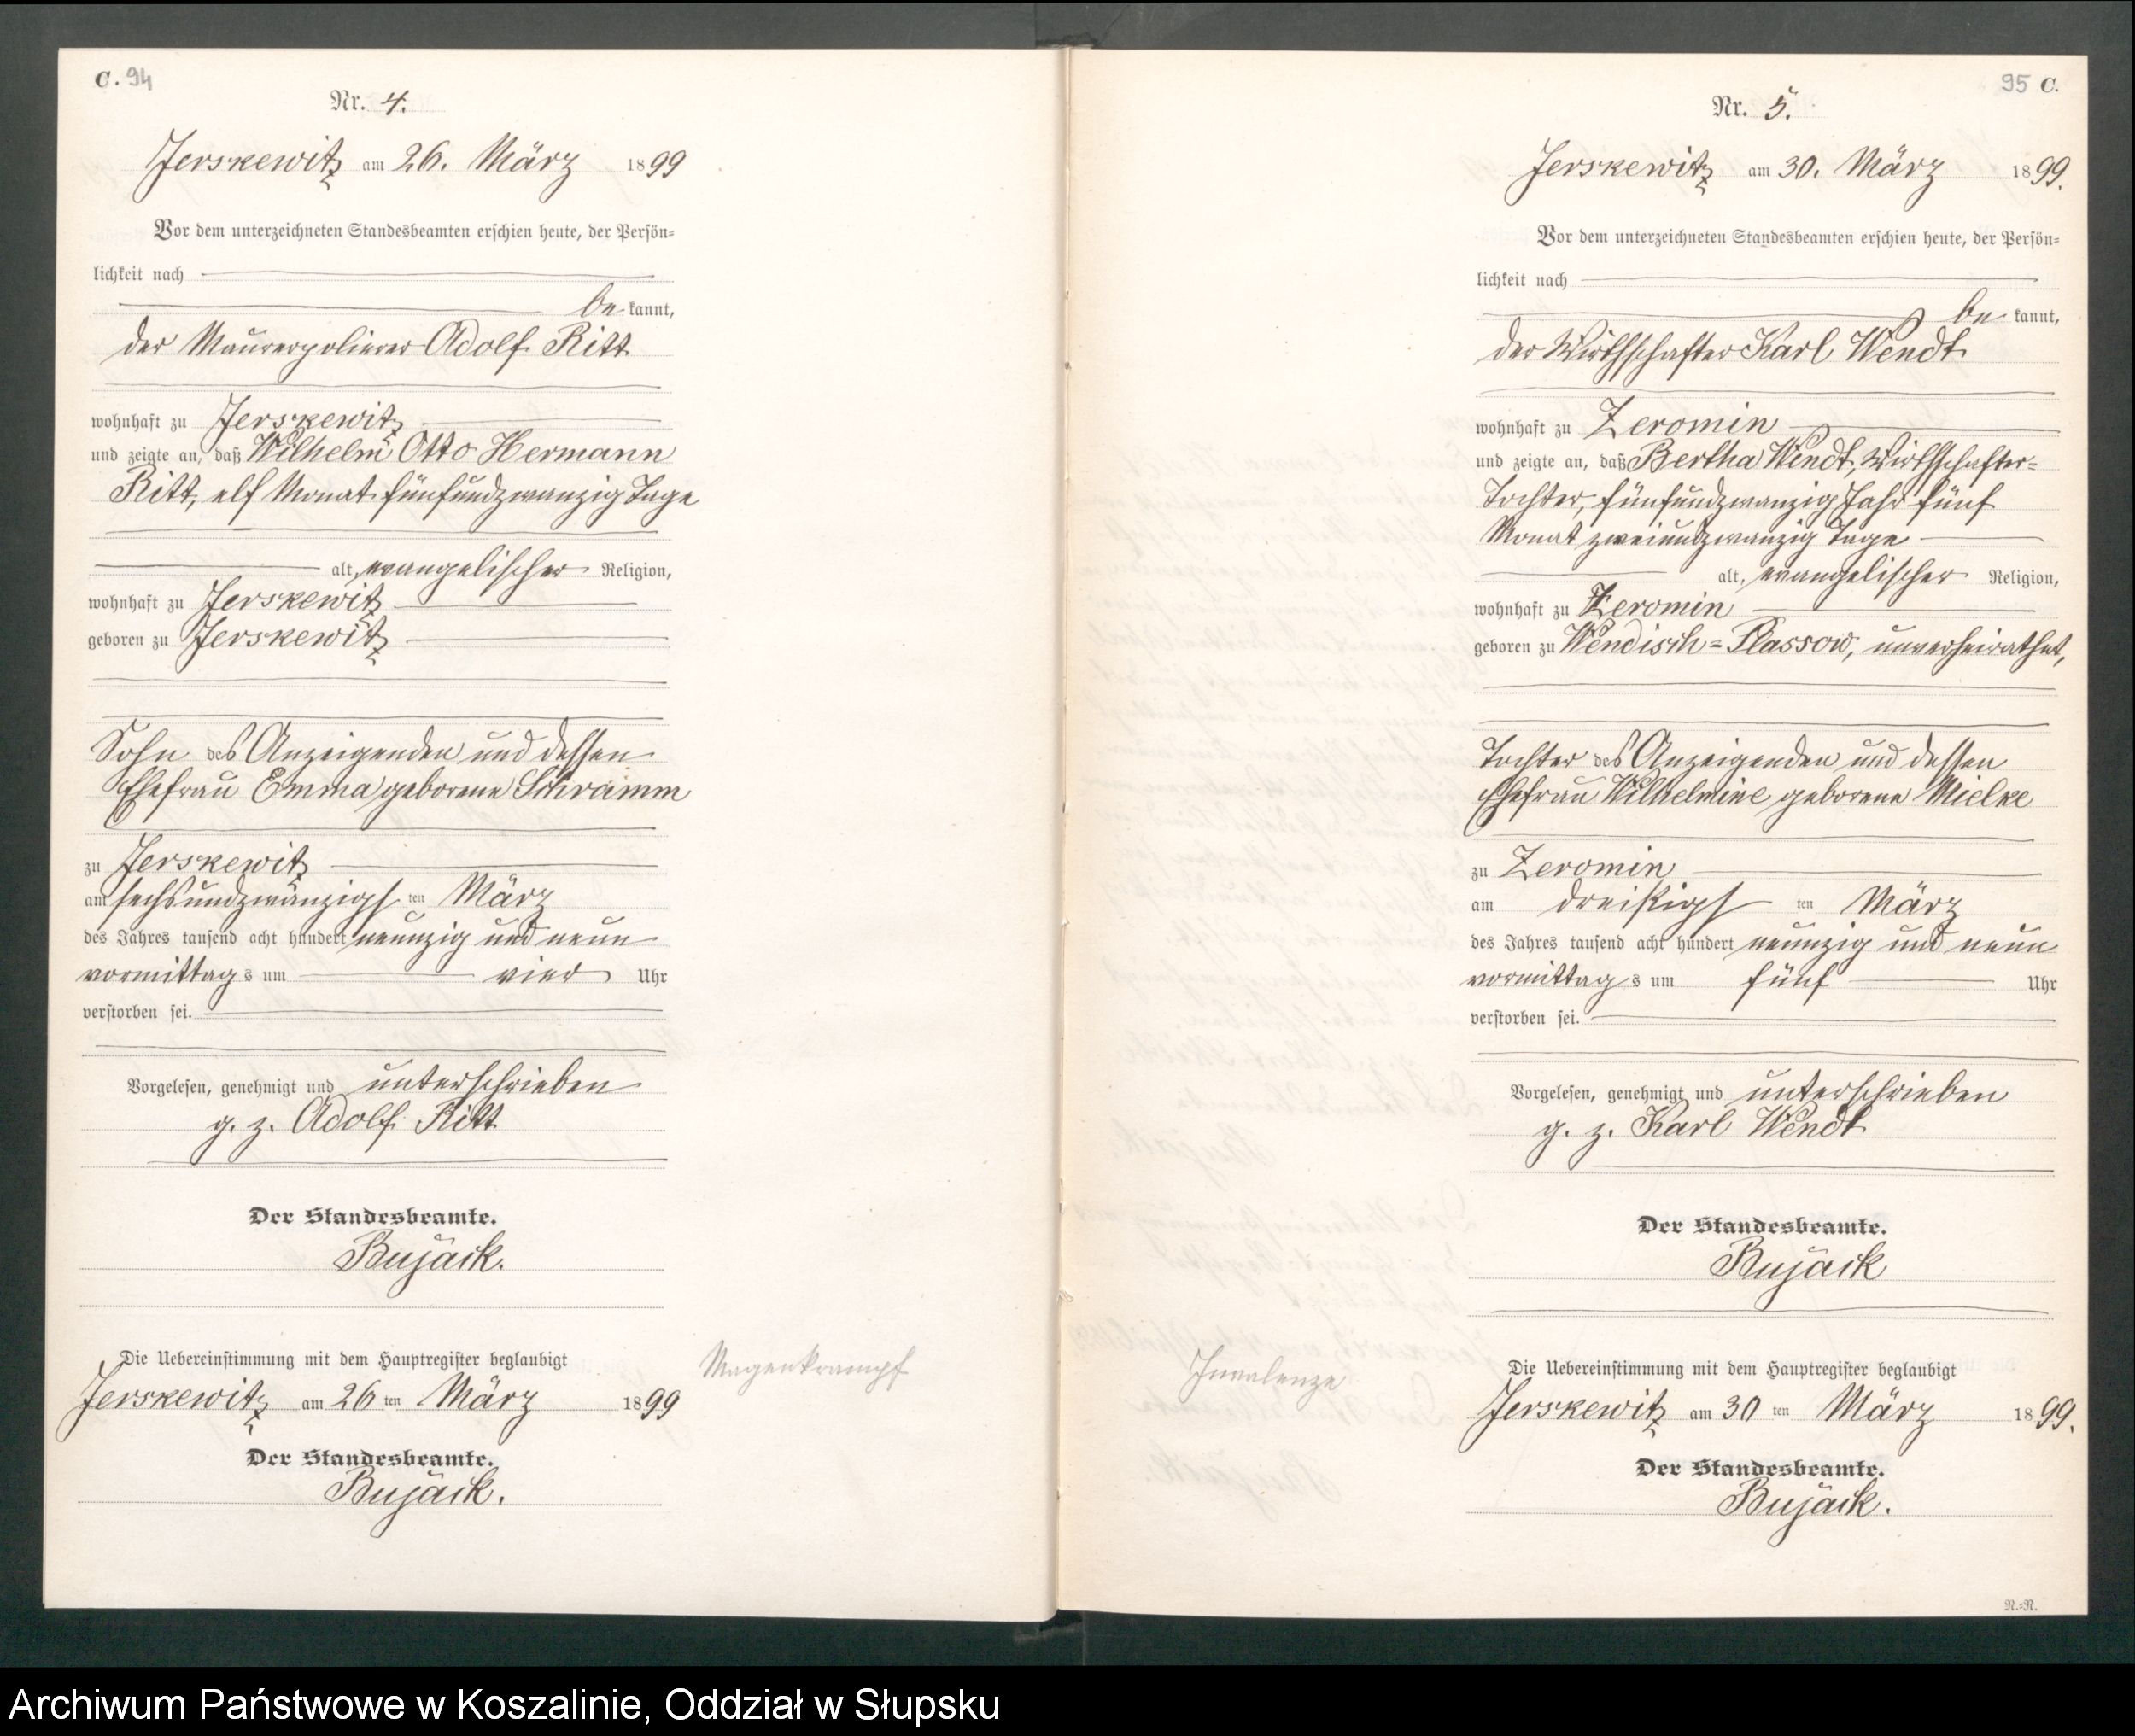 C. 94
Nr. 4.
Jerskewitz am 26. März 1899
Vor dem unterzeichneten Standesbeamten erschien heute, der Persön-
lichkeit nach
be kannt,
der Maurerpolierer Adolf Ritt
wohnhaft zu Jerskewitz
und zeigte an, daß Wilhelm Otto Hermann
Ritt, elf Monat fünfundzwanzig Tage
alt, evangelischer Religion,
wohnhaft zu Jerskewitz
geboren zu Jerskewitz
Sohn des Anzeigenden und dessen
Ehefrau Emma geborene Schramm
zu Jerskewitz
am sechsundzwanzigs ten März
des Jahres tausend acht hundert neunzig und neun
vormittag s um vier Uhr
verstorben sei.
Vorgelesen, genehmigt und unterschrieben
g. z. Adolf Ritt
Der Standesbeamte.
Bujack.
Die Uebereinstimmung mit dem Hauptregister beglaubigt
Jerskewitz am 26 ten März 1899
Der Standesbeamte.
Bujack.
Magenkrampf
95 C.
Nr. 5.
Jerskewitz am 30. März 1899.
Vor dem unterzeichneten Standesbeamten erschien heute, der Persön-
lichkeit nach
be kannt,
der Wirthschafter Karl Wendt
wohnhaft zu Zeromin
und zeigte an, daß Bertha Wendt, Wirthschafter-
Tochter, fünfundzwanzig Jahr fünf
Monat zweiundzwanzig Tage
alt, evangelischer Religion,
wohnhaft zu Zeromin
geboren zu Wendisch-Plassow, unverheirathet,
Tochter des Anzeigenden und dessen
Ehefrau Wilhelmine geborene Mielke
zu Zeromin
am dreißigs ten März
des Jahres tausend acht hundert neunzig und neun
vormittag s um fünf Uhr
verstorben sei.
Vorgelesen, genehmigt und unterschrieben
g. z. Karl Wendt
Der Standesbeamte.
Bujack
Die Uebereinstimmung mit dem Hauptregister beglaubigt
Jerskewitz am 30 ten März 1899.
Der Standesbeamte.
Bujack.
R.-R.
Archiwum Państwowe w Koszalinie, Oddział w Słupsku